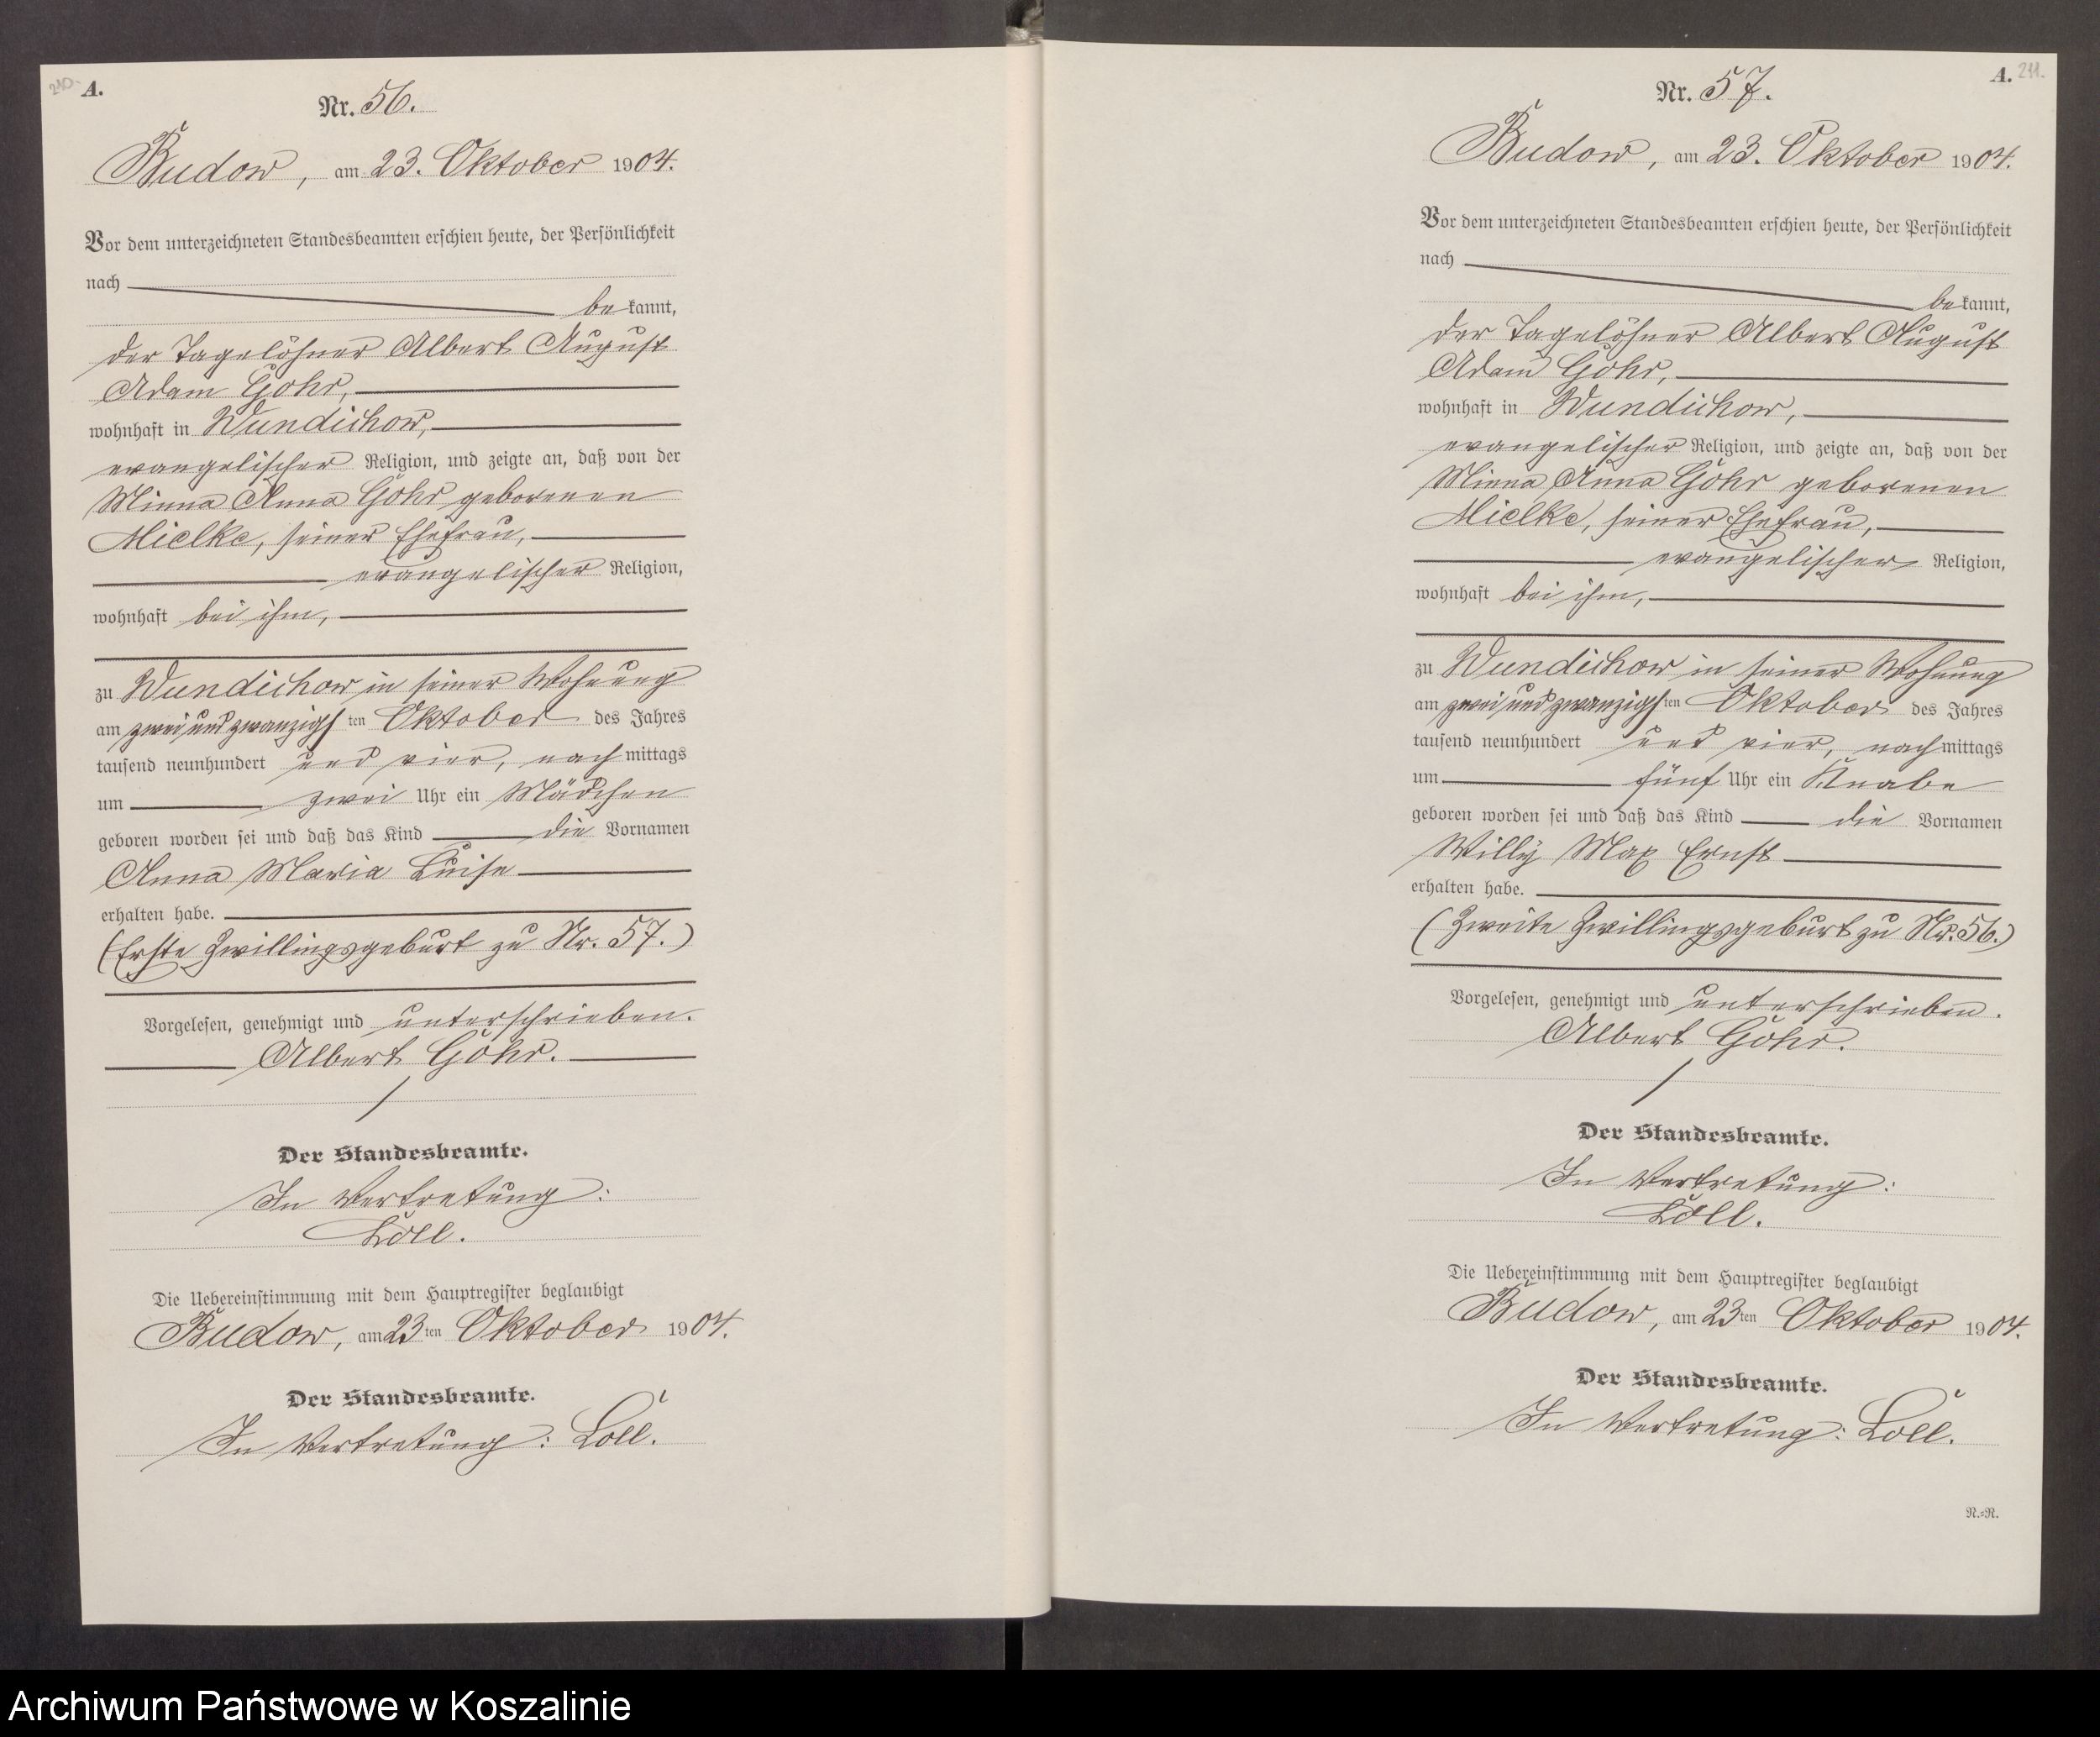 210.
A.
Nr. 56.
Budow, am 23. Oktober 1904.
Vor dem unterzeichneten Standesbeamten erschien heute, der Persönlichkeit
nach
bekannt,
der Tagelöhner Albert August
Adam Göhr,
wohnhaft in Wundichow,
evangelischer Religion, und zeigte an, daß von der
Minna Anna Göhr geborenen
Mielke, seiner Ehefrau,
evangelischer Religion,
wohnhaft bei ihm,
zu Wundichow in seiner Wohnung
am zwei und zwanzigsten Oktober des Jahres
tausend neunhundert und vier, nachmittags
um zwei Uhr ein Mädchen
geboren worden sei und daß das Kind die Vornamen
Anna Maria Luise
erhalten habe.
(Erste Zwillingsgeburt zu Nr. 57.)
Vorgelesen, genehmigt und unterschrieben.
Albert Göhr.
Der Standesbeamte.
In Vertretung:
Löll.
Die Uebereinstimmung mit dem Hauptregister beglaubigt
Budow, am 23ten Oktober 1904.
Der Standesbeamte.
In Vertretung: Löll.
A. 211.
Nr. 57.
Budow, am 23. Oktober 1904.
Vor dem unterzeichneten Standesbeamten erschien heute, der Persönlichkeit
nach
bekannt,
der Tagelöhner Albert August
Adam Göhr,
wohnhaft in Wundichow,
evangelischer Religion, und zeigte an, daß von der
Minna Anna Göhr geborenen
Mielke, seiner Ehefrau,
evangelischer Religion,
wohnhaft bei ihm,
zu Wundichow in seiner Wohnung
am zwei und zwanzigsten Oktober des Jahres
tausend neunhundert und vier, nachmittags
um fünf Uhr ein Knabe
geboren worden sei und daß das Kind die Vornamen
Willy Max Ernst
erhalten habe.
(Zweite Zwillingsgeburt zu Nr. 56.)
Vorgelesen, genehmigt und unterschrieben.
Albert Göhr.
Der Standesbeamte.
In Vertretung:
Löll.
Die Uebereinstimmung mit dem Hauptregister beglaubigt
Budow, am 23ten Oktober 1904.
Der Standesbeamte.
In Vertretung: Löll.
N.-R.
Archiwum Państwowe w Koszalinie